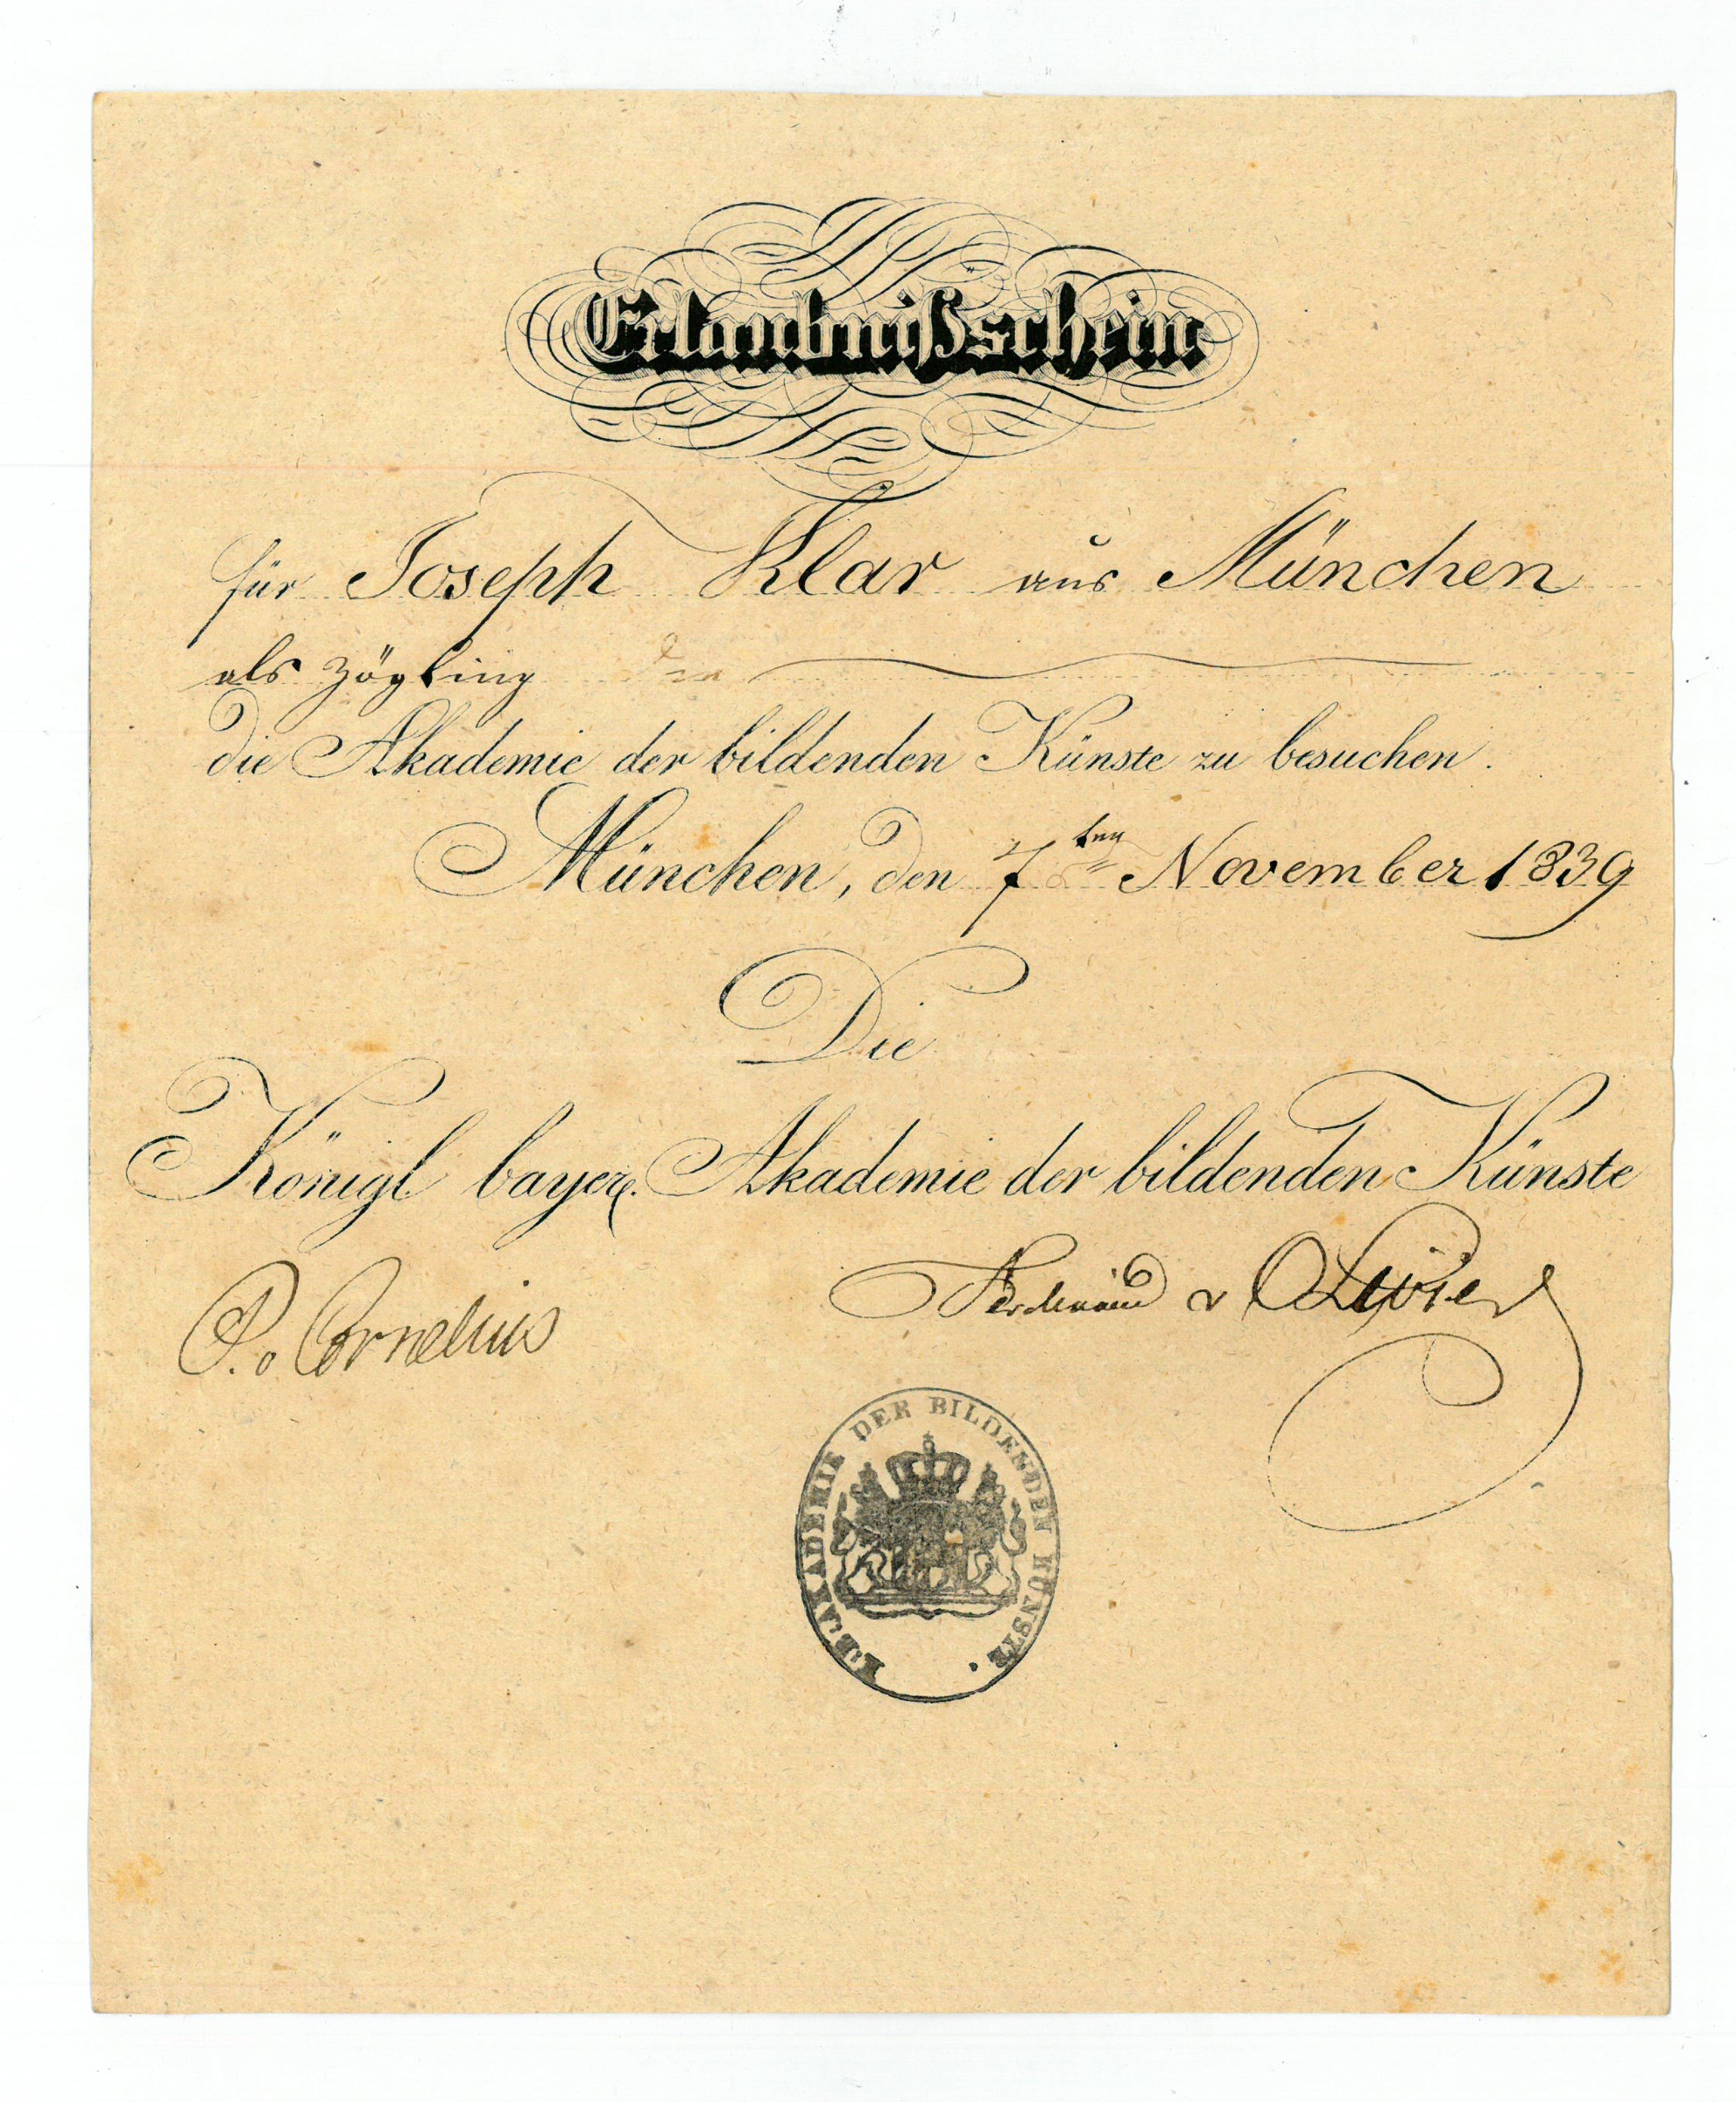 Erlaubnißschein
für Joseph Klar aus München
als Zögling
die Akademie der bildenden Künste zu besuchen.
München, den 7ten November 1839
Die
Königl. bayer. Akademie der bildenden Künste
P. v Cornelius
Ferdinand v Olivier
K:B:AKADEMIE DER BILDENDEN KÜNSTE.